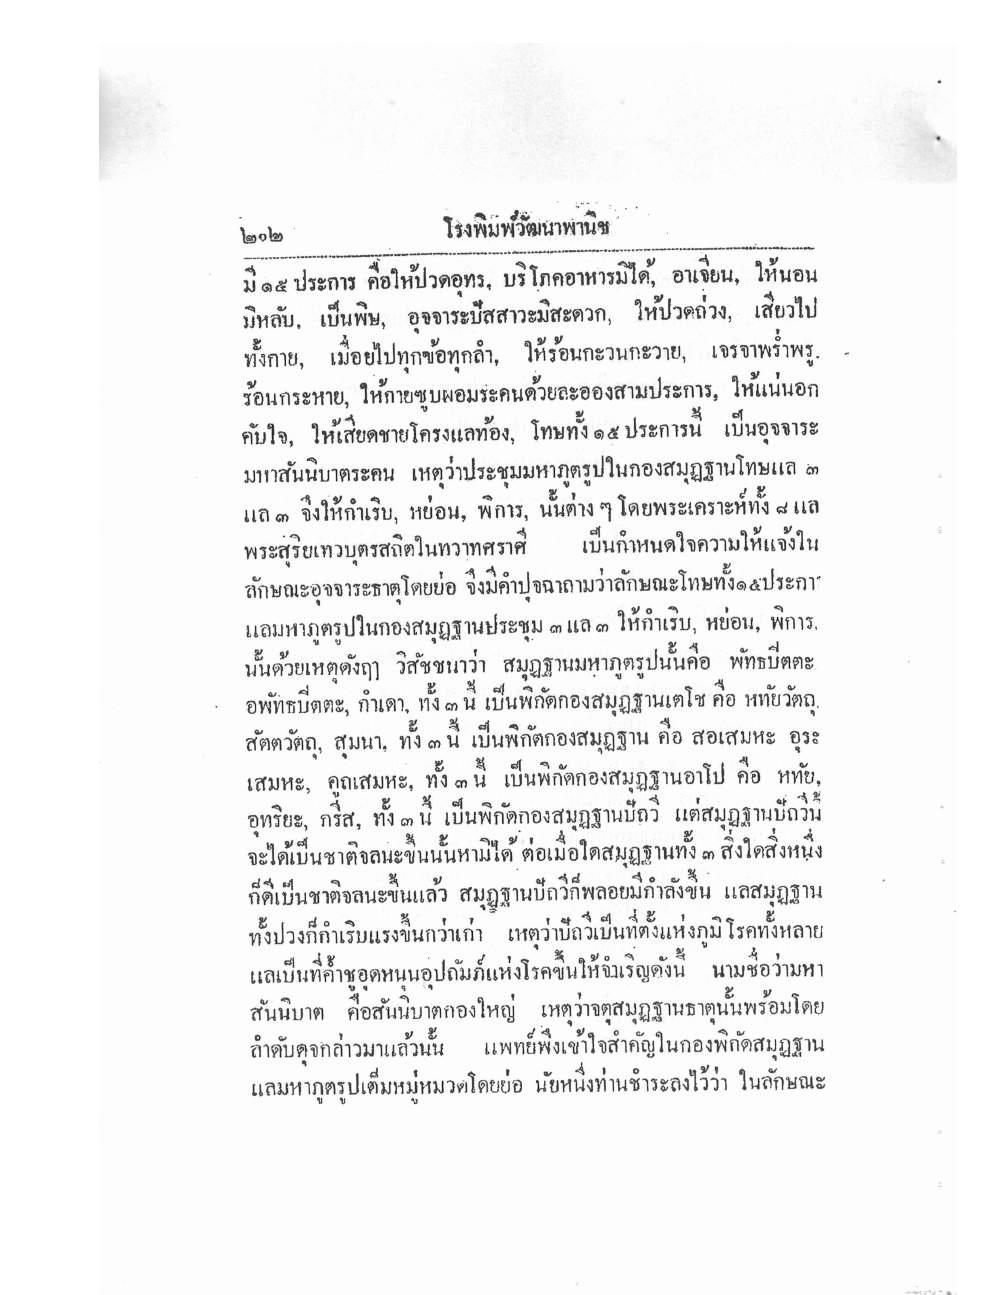 ๒๑๒ โรงพิมพ์วัฒนาพานิช
มี ๑๕ ประการ คือให้ปวดอุทร, บริโภคอาหารมิได้, อาเจียน, ให้นอน
มิหลับ, เป็นพิษ, อุจจาระปัสสาวะมิสะดวก, ให้ปวดถ่วง, เสียวไป
ทั้งกาย, เมื่อยไปทุกข้อทุกลำ, ให้ร้อนกะวนกะวาย, เจรจาพร่ำพรู,
ร้อนกระหาย, ให้กายซูบผอมระคนด้วยละอองสามประการ, ให้แน่นอก
คับใจ, ให้เสียดชายโครงแลท้อง, โทษทั้ง ๑๕ ประการนี้ เป็นอุจจาระ
มหาสันนิบาตระคน เหตุว่าประชุมมหาภูตรูปในกองสมุฏฐานโทษแล ๓
แล ๓ จึงให้กำเริบ, หย่อน, พิการ, นั้นต่าง ๆ โดยพระเคราะห์ทั้ง ๘ แล
พระสุริยเทวบุตรสถิตในทวาทศราศี เป็นกำหนดใจความให้แจ้งใน
ลักษณะอุจจาระธาตุโดยย่อ จึงมีคำปุจฉาถามว่าลักษณะโทษทั้ง๑๕ประกา
แลมหาภูตรูปในกองสมุฏฐานประชุม ๓ แล ๓ ให้กำเริบ, หย่อน, พิการ,
นั้นด้วยเหตุดังฤๅ วิสัชชนาว่า สมุฏฐานมหาภูตรูปนั้นคือ พัทธปิตตะ
อพัทธปิตตะ, กำเดา, ทั้ง ๓ นี้ เป็นพิกัดกองสมุฏฐานเตโช คือ หทัยวัตถุ,
สัตตวัตถุ, สุมนา, ทั้ง ๓ นี้ เป็นพิกัตกองสมุฏฐาน คือ สอเสมหะ อุระ
เสมหะ, คูถเสมหะ, ทั้ง ๓ นี้ เป็นพิกัดกองสมุฏฐานอาโป คือ หทัย,
อุทริยะ, กรีส, ทั้ง ๓ นี้ เป็นพิกัดกองสมุฏฐานปัถวี แต่สมุฏฐานปัถวีนี้
จะได้เป็นชาติจลนะขึ้นนั้นหามิได้ ต่อเมื่อใดสมุฏฐานทั้ง ๓ สิ่งใดสิ่งหนึ่ง
ก็ดีเป็นชาติจลนะขึ้นแล้ว สมุฏฐานปัถวีก็พลอยมีกำลังขึ้น แลสมุฏฐาน
ทั้งปวงก็กำเริบแรงขึ้นกว่าเก่า เหตุว่าปัถวีเป็นที่ตั้งแห่งภูมิโรคทั้งหลาย
แลเป็นที่ค้ำชูอุดหนุนอุปถัมภ์แห่งโรคขึ้นให้จำเริญดังนี้ นามชื่อว่ามหา
สันนิบาต คือสันนิบาตกองใหญ่ เหตุว่าจตุสมุฏฐานธาตุนั้นพร้อมโดย
ลำดับดุจกล่าวมาแล้วนั้น แพทย์พึงเข้าใจสำคัญในกองพิกัดสมุฏฐาน
แลมหาภูตรูปเต็มหมู่หมวดโดยย่อ นัยหนึ่งท่านชำระลงไว้ว่า ในลักษณะ